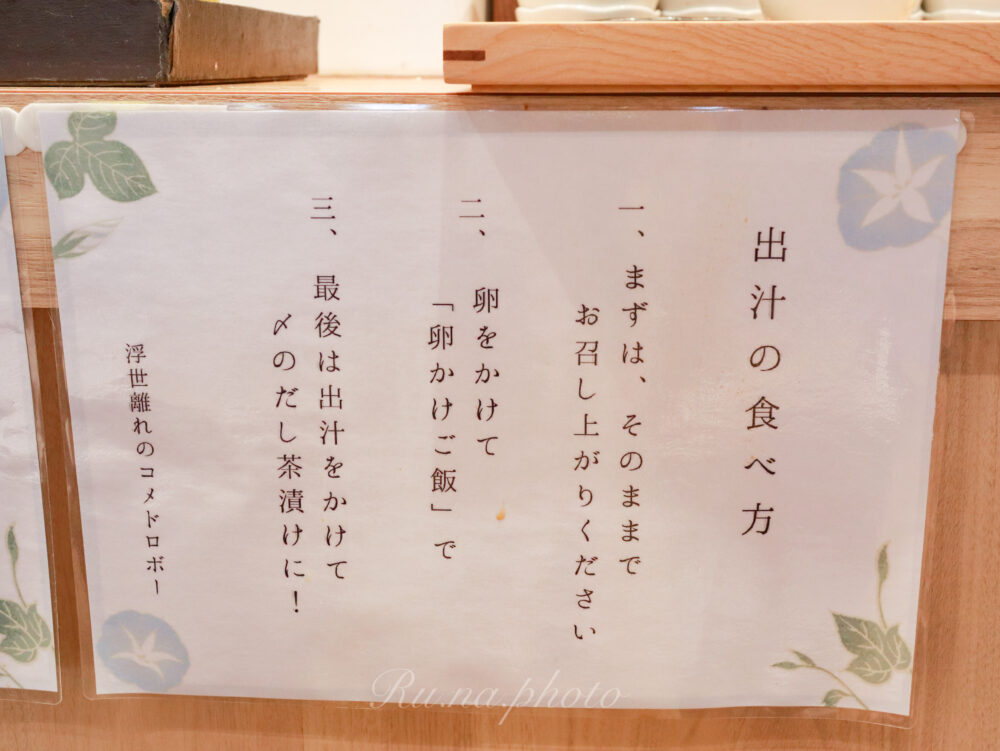 出汁の食べ方
一、まずは、そのままで
お召し上がりください
二、卵をかけて
「卵かけご飯」で
三、最後は出汁をかけて
〆のだし茶漬けに！
浮世離れのコメドロボー
Ru.na.photo